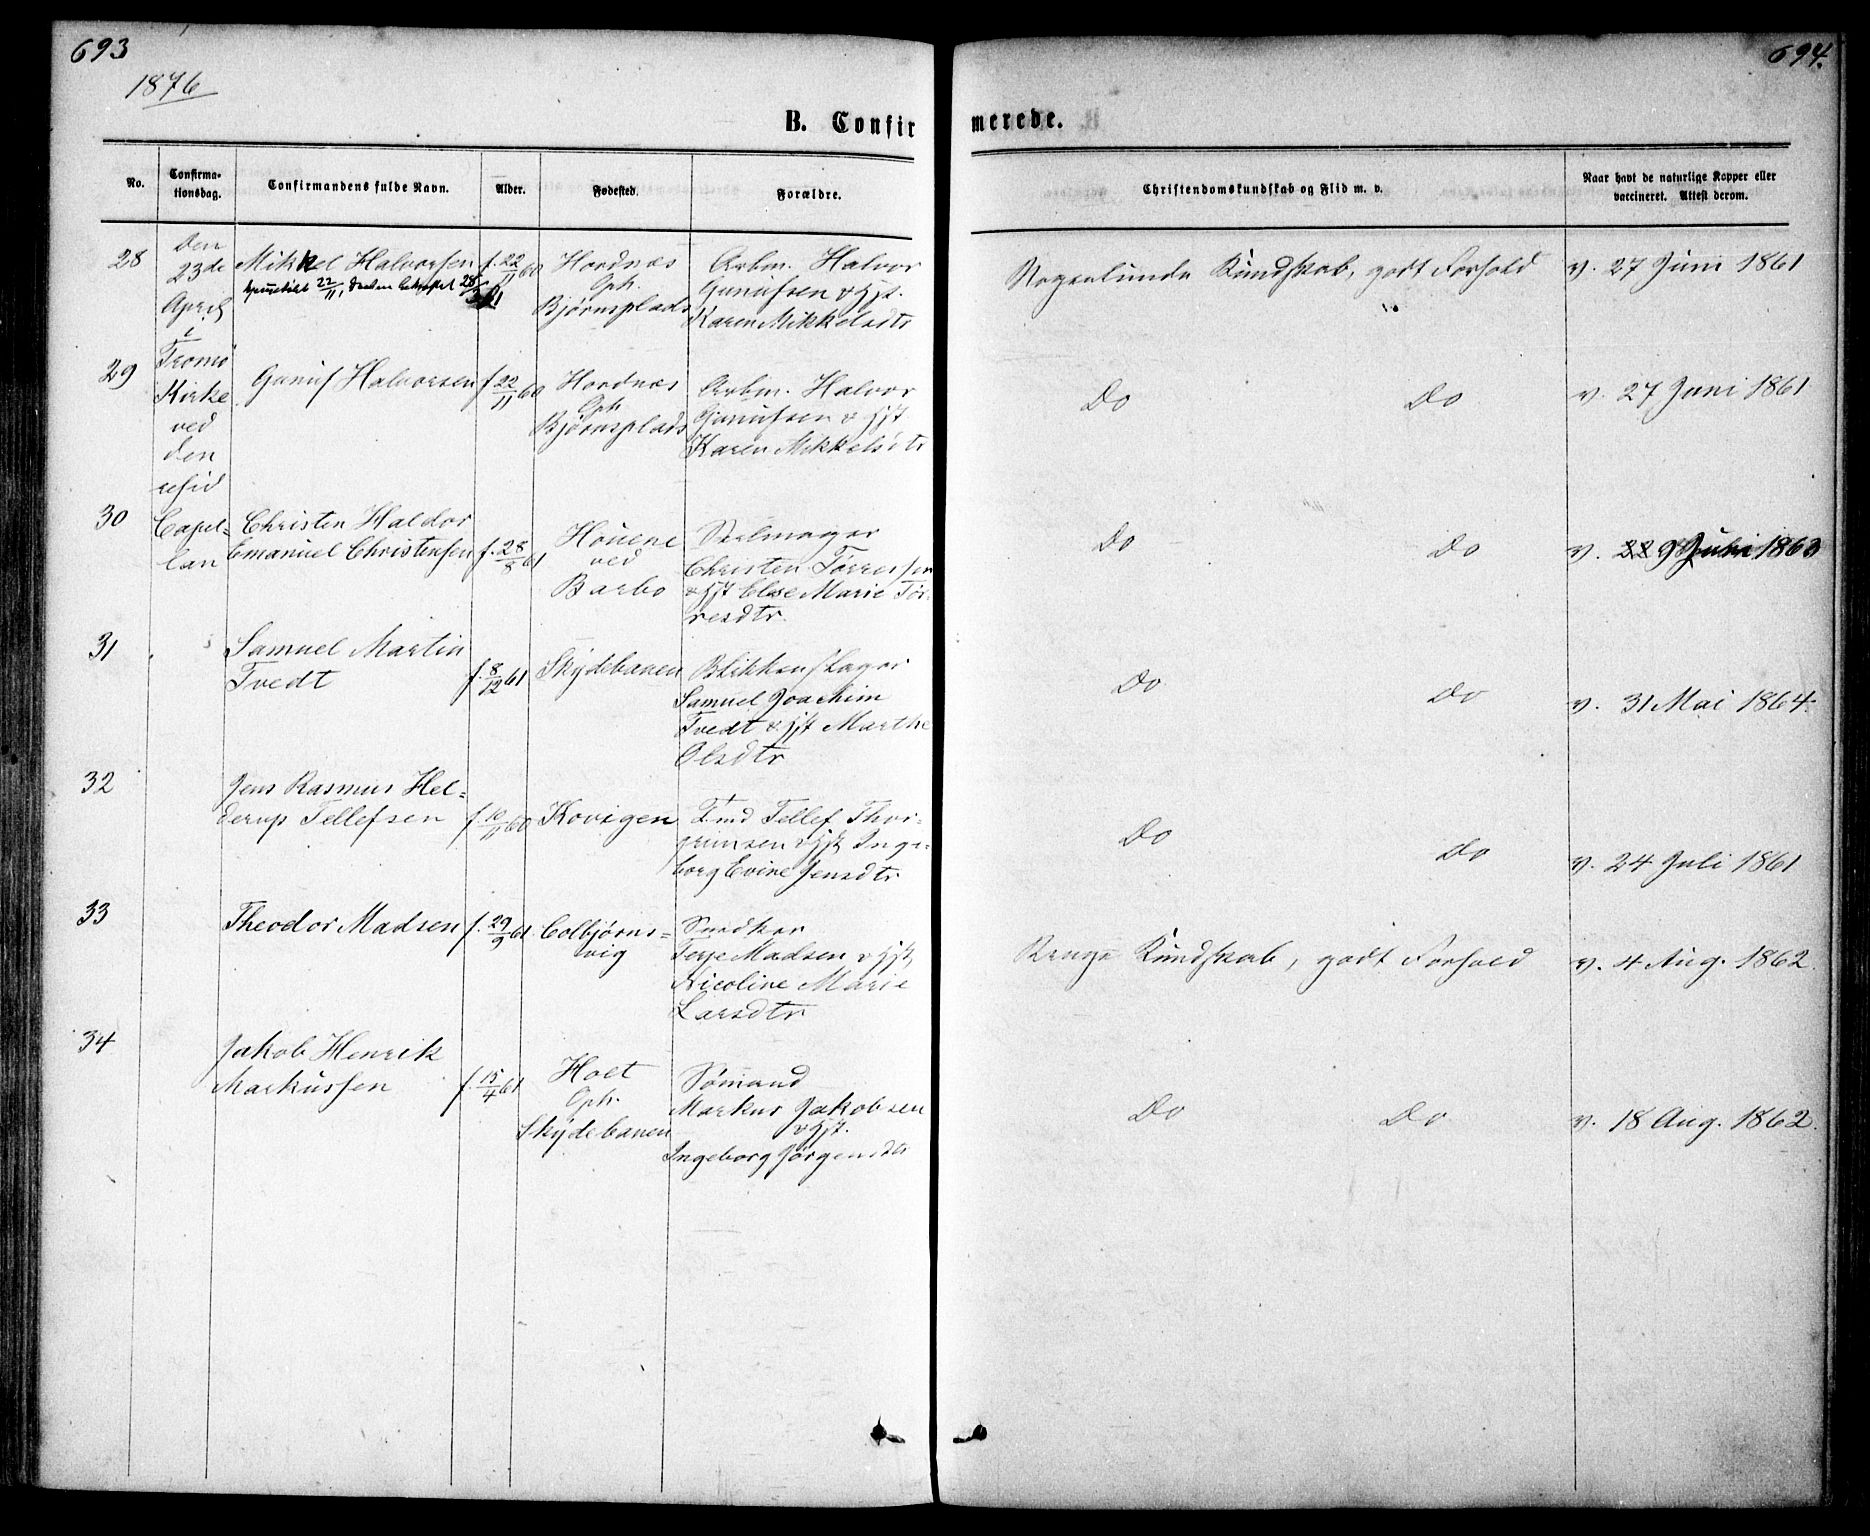 693
1876
694.
B. Confirmerede.
No.
Confirma-
tionsdag.
Confirmandens fulde Navn.
Alder.
Fødested.
Forældre.
Christendomskundskab og Flid m. v.
Naar havt de naturlige Kopper eller
vaccineret. Attest derom.
Den
23de
April
i
Tromø
Kirke
ved
den
resid
Capel-
lan
28
Mikkel Halvorsen
22/11, 28/3 61
f. 22/11 60
Hordnæs
Oph.
Bjørnsplads
Arbm. Halvor
Gunufsen & Hst.
Karen Mikkelsdtr
Nogenlunde Kundskab, godt Forhold
v. 27 Juni 1861
29
Gunuf Halvorsen
f. 22/11 60
Hordnæs
Oph
Bjørnsplads
Arbm. Halvor
Gunufsen & Hst
Karen Mikkelsdtr
Do
Do
v. 27 Juni 1861
30
Christen Haldor
Emanuel Christensen
f. 28/8 61
Houene
ved
Barbo
Seilmager
Christen Tørresen
& Hst Else Marie Tør-
resdtr.
Do
Do
v. 9 Juli 1863
31
Samuel Martin
Tvedt
f. 8/12 61
Skydebanen
Blikkenslager
Samuel Joachim
Tvedt & Hst Marthe
Olsdtr
Do
Do
v. 31 Mai 1864.
32
Jens Rasmus Hel-
derup Tellefsen
f. 10/11 60
Kovigen
Tmd Tellef Thor-
grimsen & Hst Inge-
borg Evine Jensdtr
Do
Do
v. 24 Juli 1861
33
Theodor Madsen
f. 29/9 61
Colbjørns-
vig
Snedker
Terje Madsen & Hst
Nicoline Marie
Larsdtr
Kundskab, godt Forhold
v. 4 Aug. 1862.
34
Jakob Henrik
Markussen
f. 15/4 61
Holt
Oph.
Skydebanen
Sømand
Markus Jakobsen
& Hst.
Ingeborg Jørgensdtr
Do
Do
v. 18 Aug. 1862.